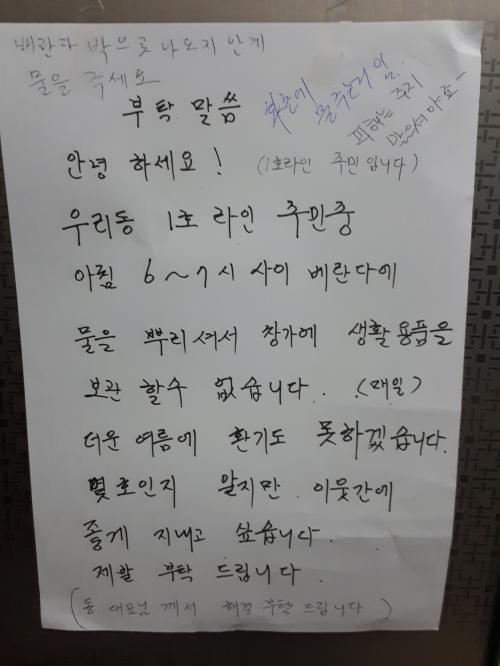 베란다 밖으로 나오지 안게
물을 주세요
부탁 말씀
화분에
물주는거 임.
피해는 주지
말으셔야죠~
안녕 하세요!
(1호라인 주민 입니다)
우리동 1호 라인 주민중
아침 6~7시 사이 베란다에
물을 뿌리셔서 창가에 생활용품을
보관 할수 없습니다. (매일)
더운 여름에 환기도 못하겠습니다.
몇호인지 알지만 이웃간에
좋게 지내고 싶습니다.
제발 부탁 드립니다.
(동 대표님 께서 해결 부탁 드립니다)